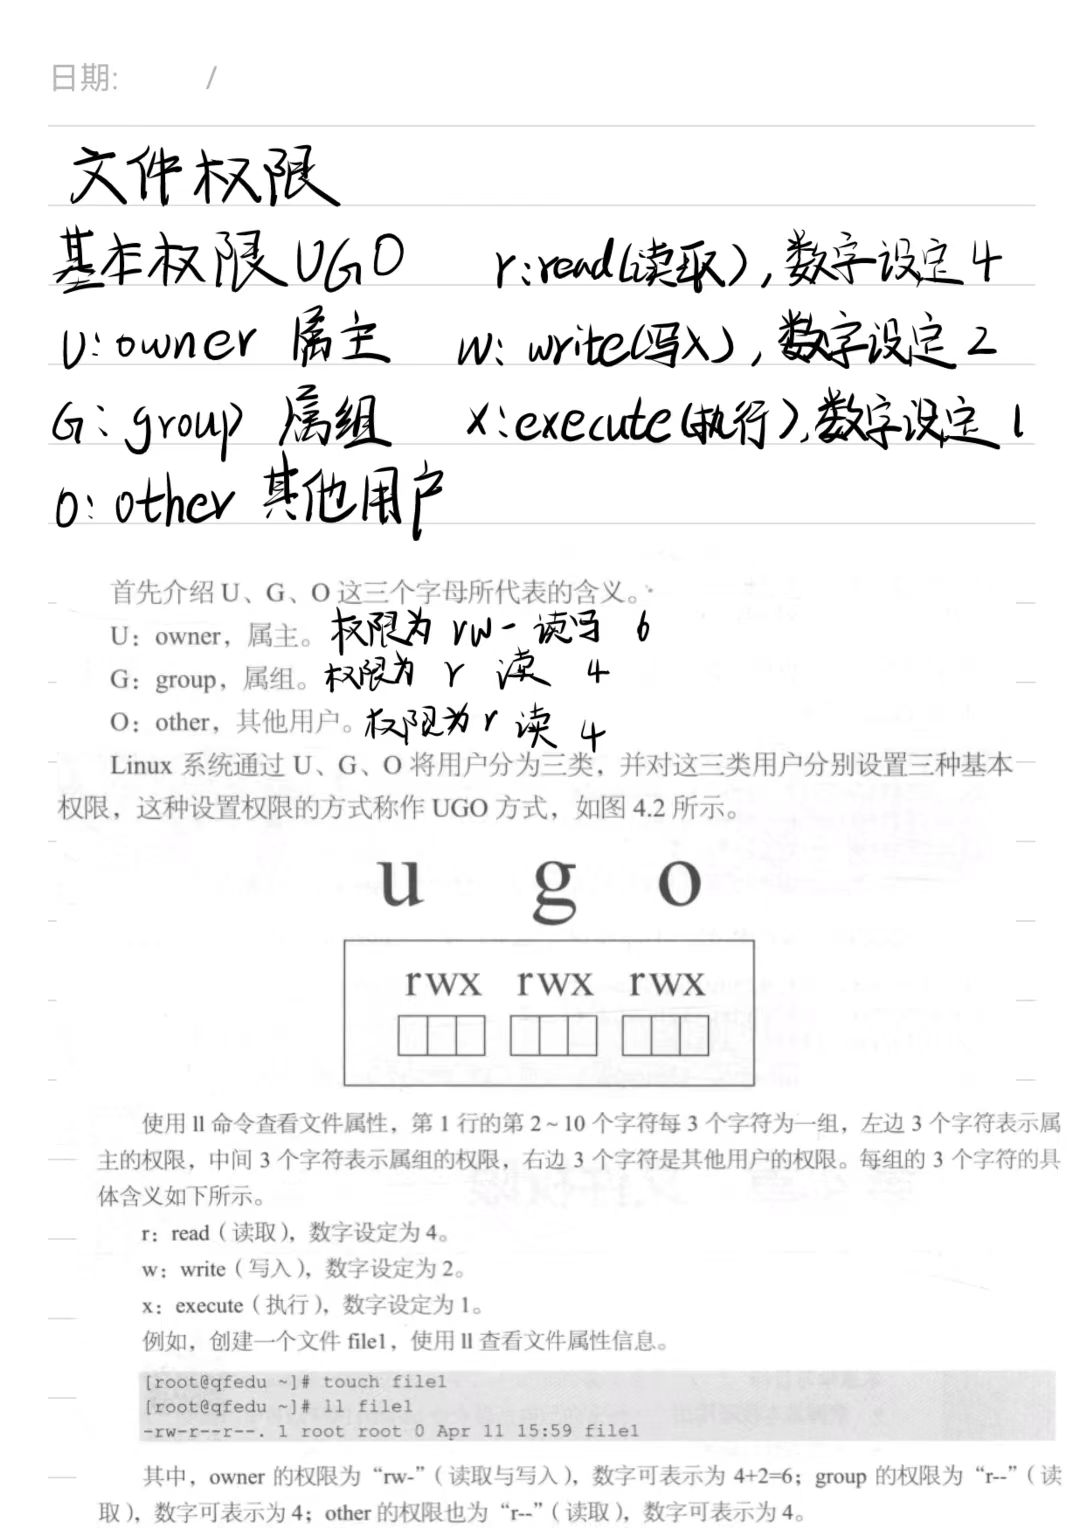 日期: /
文件权限
基本权限UGO r:read(读取),数字设定4
U:owner 属主 w:write(写入),数字设定2
G:group 属组 x:execute(执行),数字设定1
O:other 其他用户
首先介绍 U、G、O 这三个字母所代表的含义。
U：owner，属主。权限为 rw- 读写 6
G：group，属组。权限为 r 读 4
O：other，其他用户。权限为 r 读 4
Linux 系统通过 U、G、O 将用户分为三类，并对这三类用户分别设置三种基本
权限，这种设置权限的方式称作 UGO 方式，如图 4.2 所示。
u g o
rwx rwx rwx
使用 ll 命令查看文件属性，第 1 行的第 2~10 个字符每 3 个字符为一组，左边 3 个字符表示属
主的权限，中间 3 个字符表示属组的权限，右边 3 个字符是其他用户的权限。每组的 3 个字符的具
体含义如下所示。
r：read（读取），数字设定为 4。
w：write（写入），数字设定为 2。
x：execute（执行），数字设定为 1。
例如，创建一个文件 file1，使用 ll 查看文件属性信息。
[root@qfedu ~]# touch file1
[root@qfedu ~]# ll file1
-rw-r--r--. 1 root root 0 Apr 11 15:59 file1
其中，owner 的权限为“rw-”（读取与写入），数字可表示为 4+2=6；group 的权限为“r--”（读
取），数字可表示为 4；other 的权限也为“r--”（读取），数字可表示为 4。